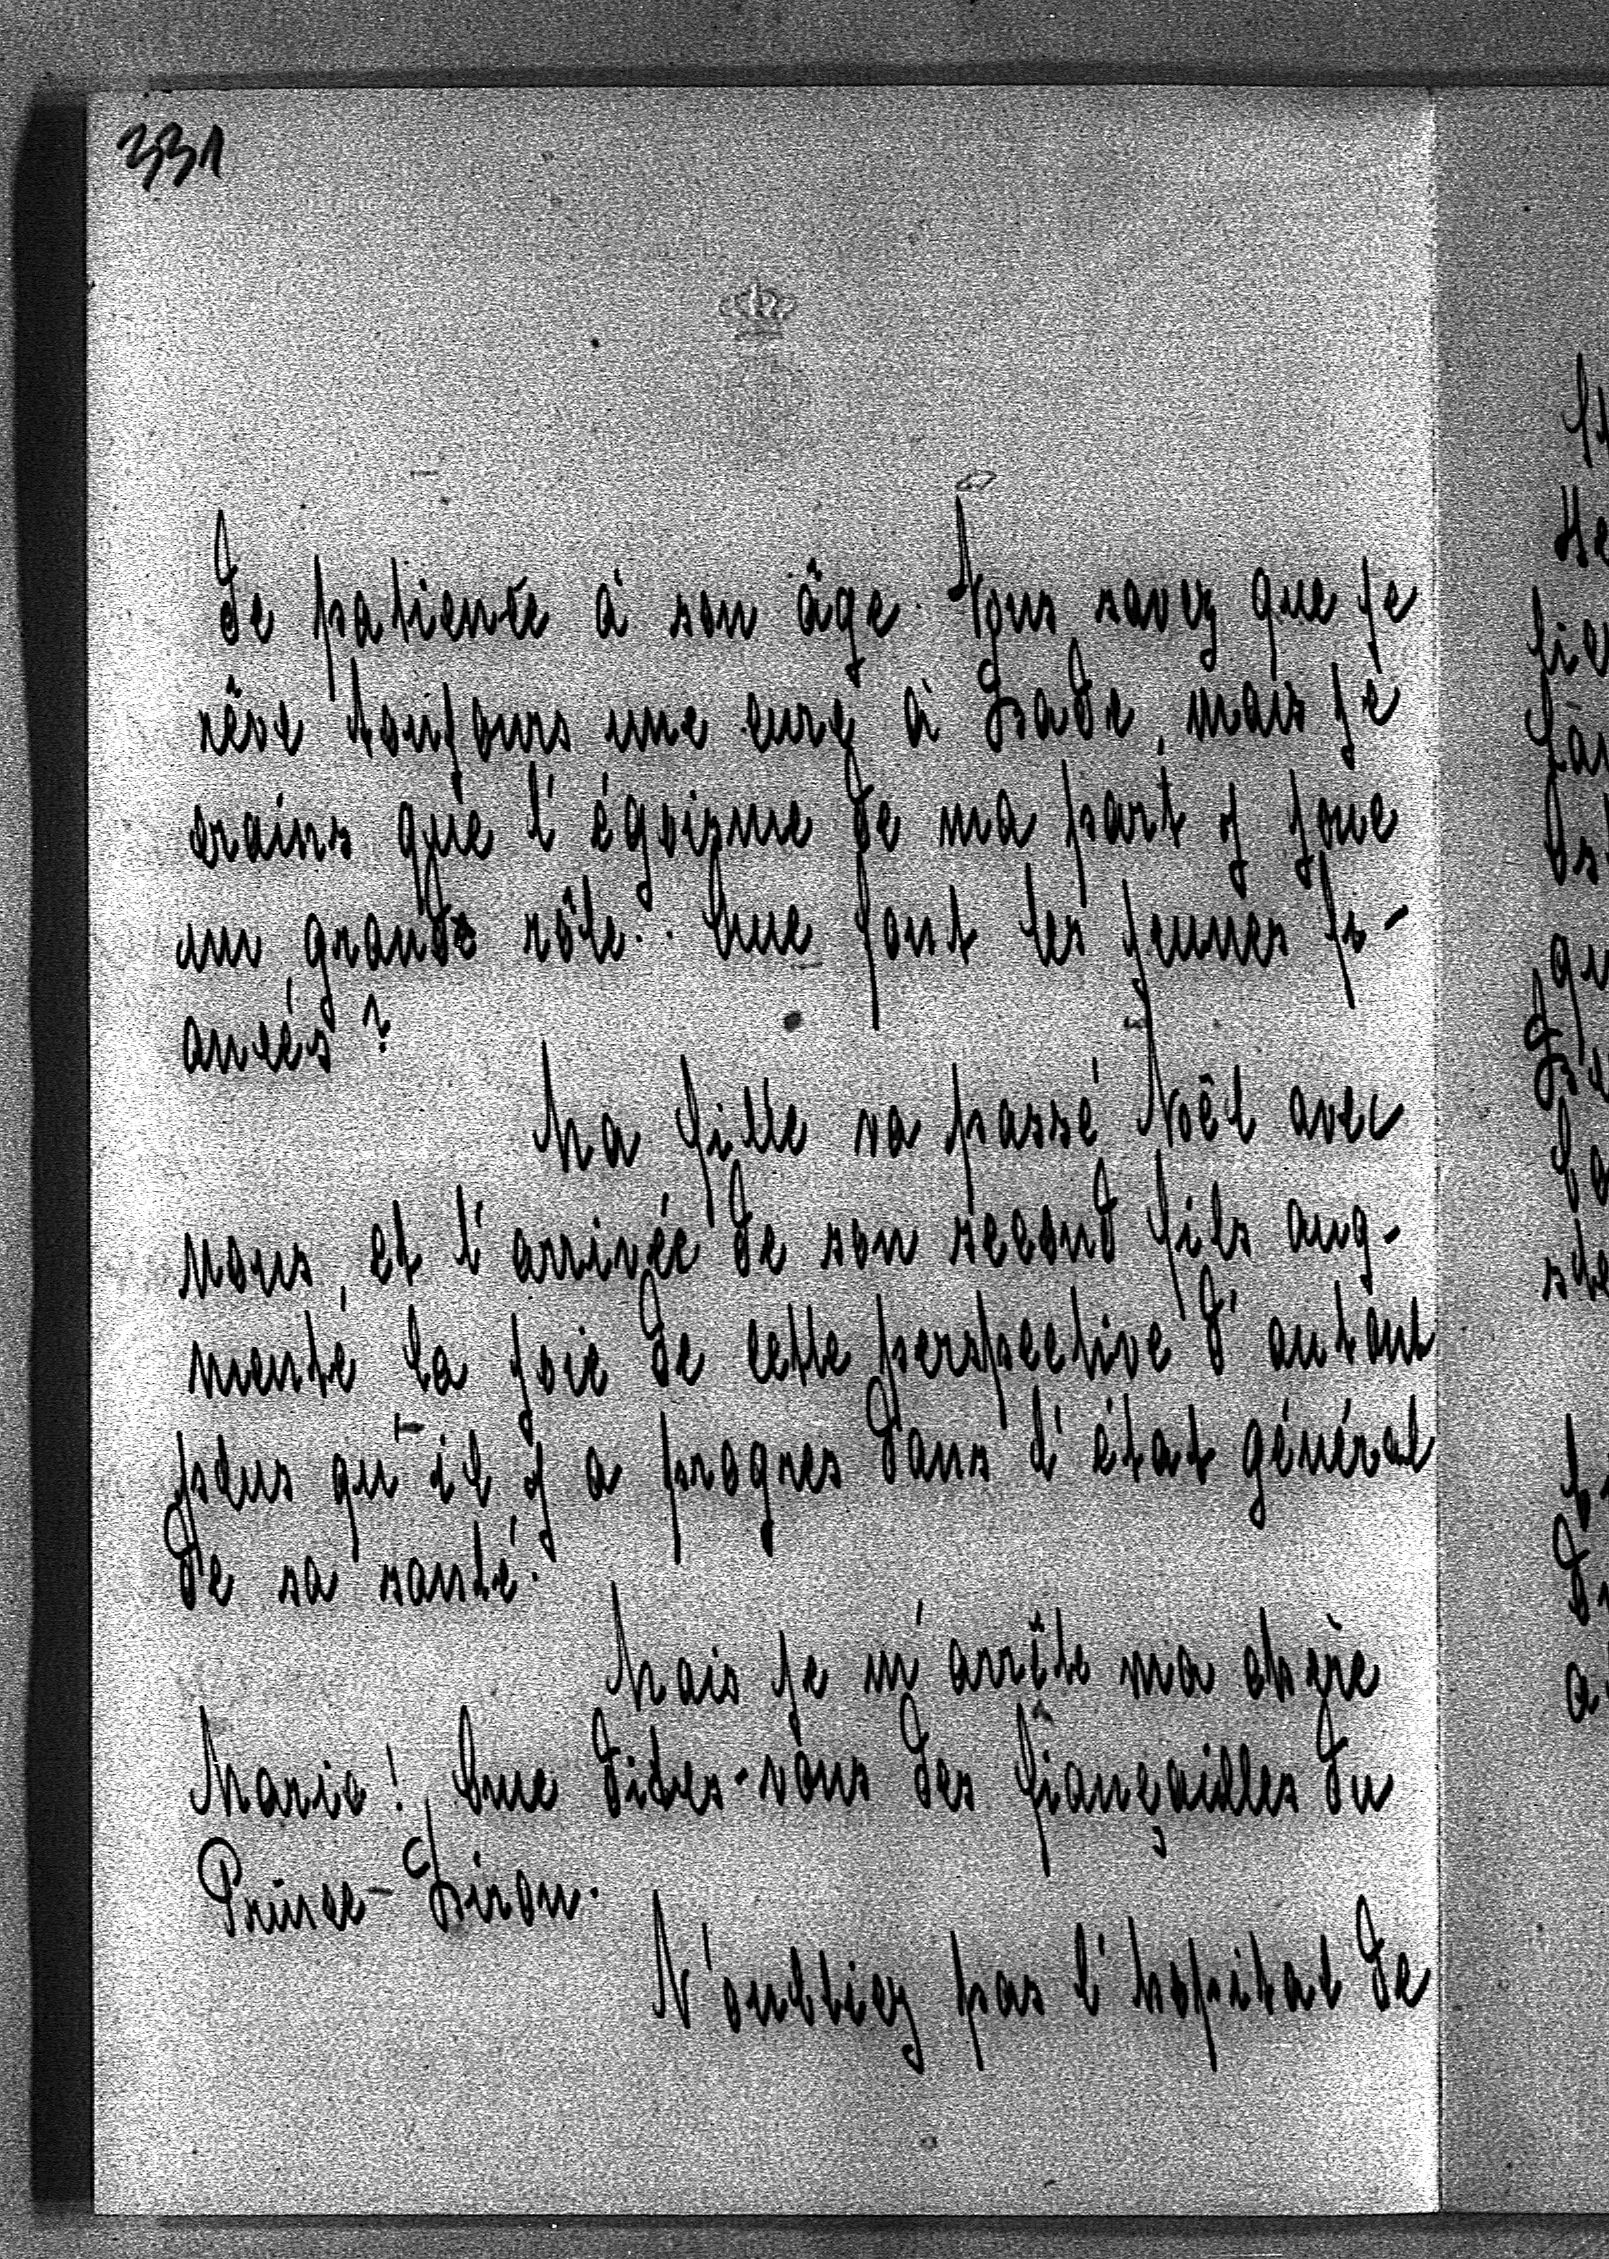 331
de patience à son âge. Vous savez que je
rêve toujours une cure à Bade, mais je
crains que l'égoisme de ma part y joue
un grande rôle. Que font les jeunes fi-
ancés?
Ma fille va passé Noël avec
nous, et l'arrivée de son second fils aug-
mente la joie de cette perspective d'autant
plus qu'il y a progres dans l'état général
de sa santé.
Mais je m'arrête ma chère
Marie! Que dites-vous des fiançailles du
Prince-Biron.
N'oubliez pas l'hopital de